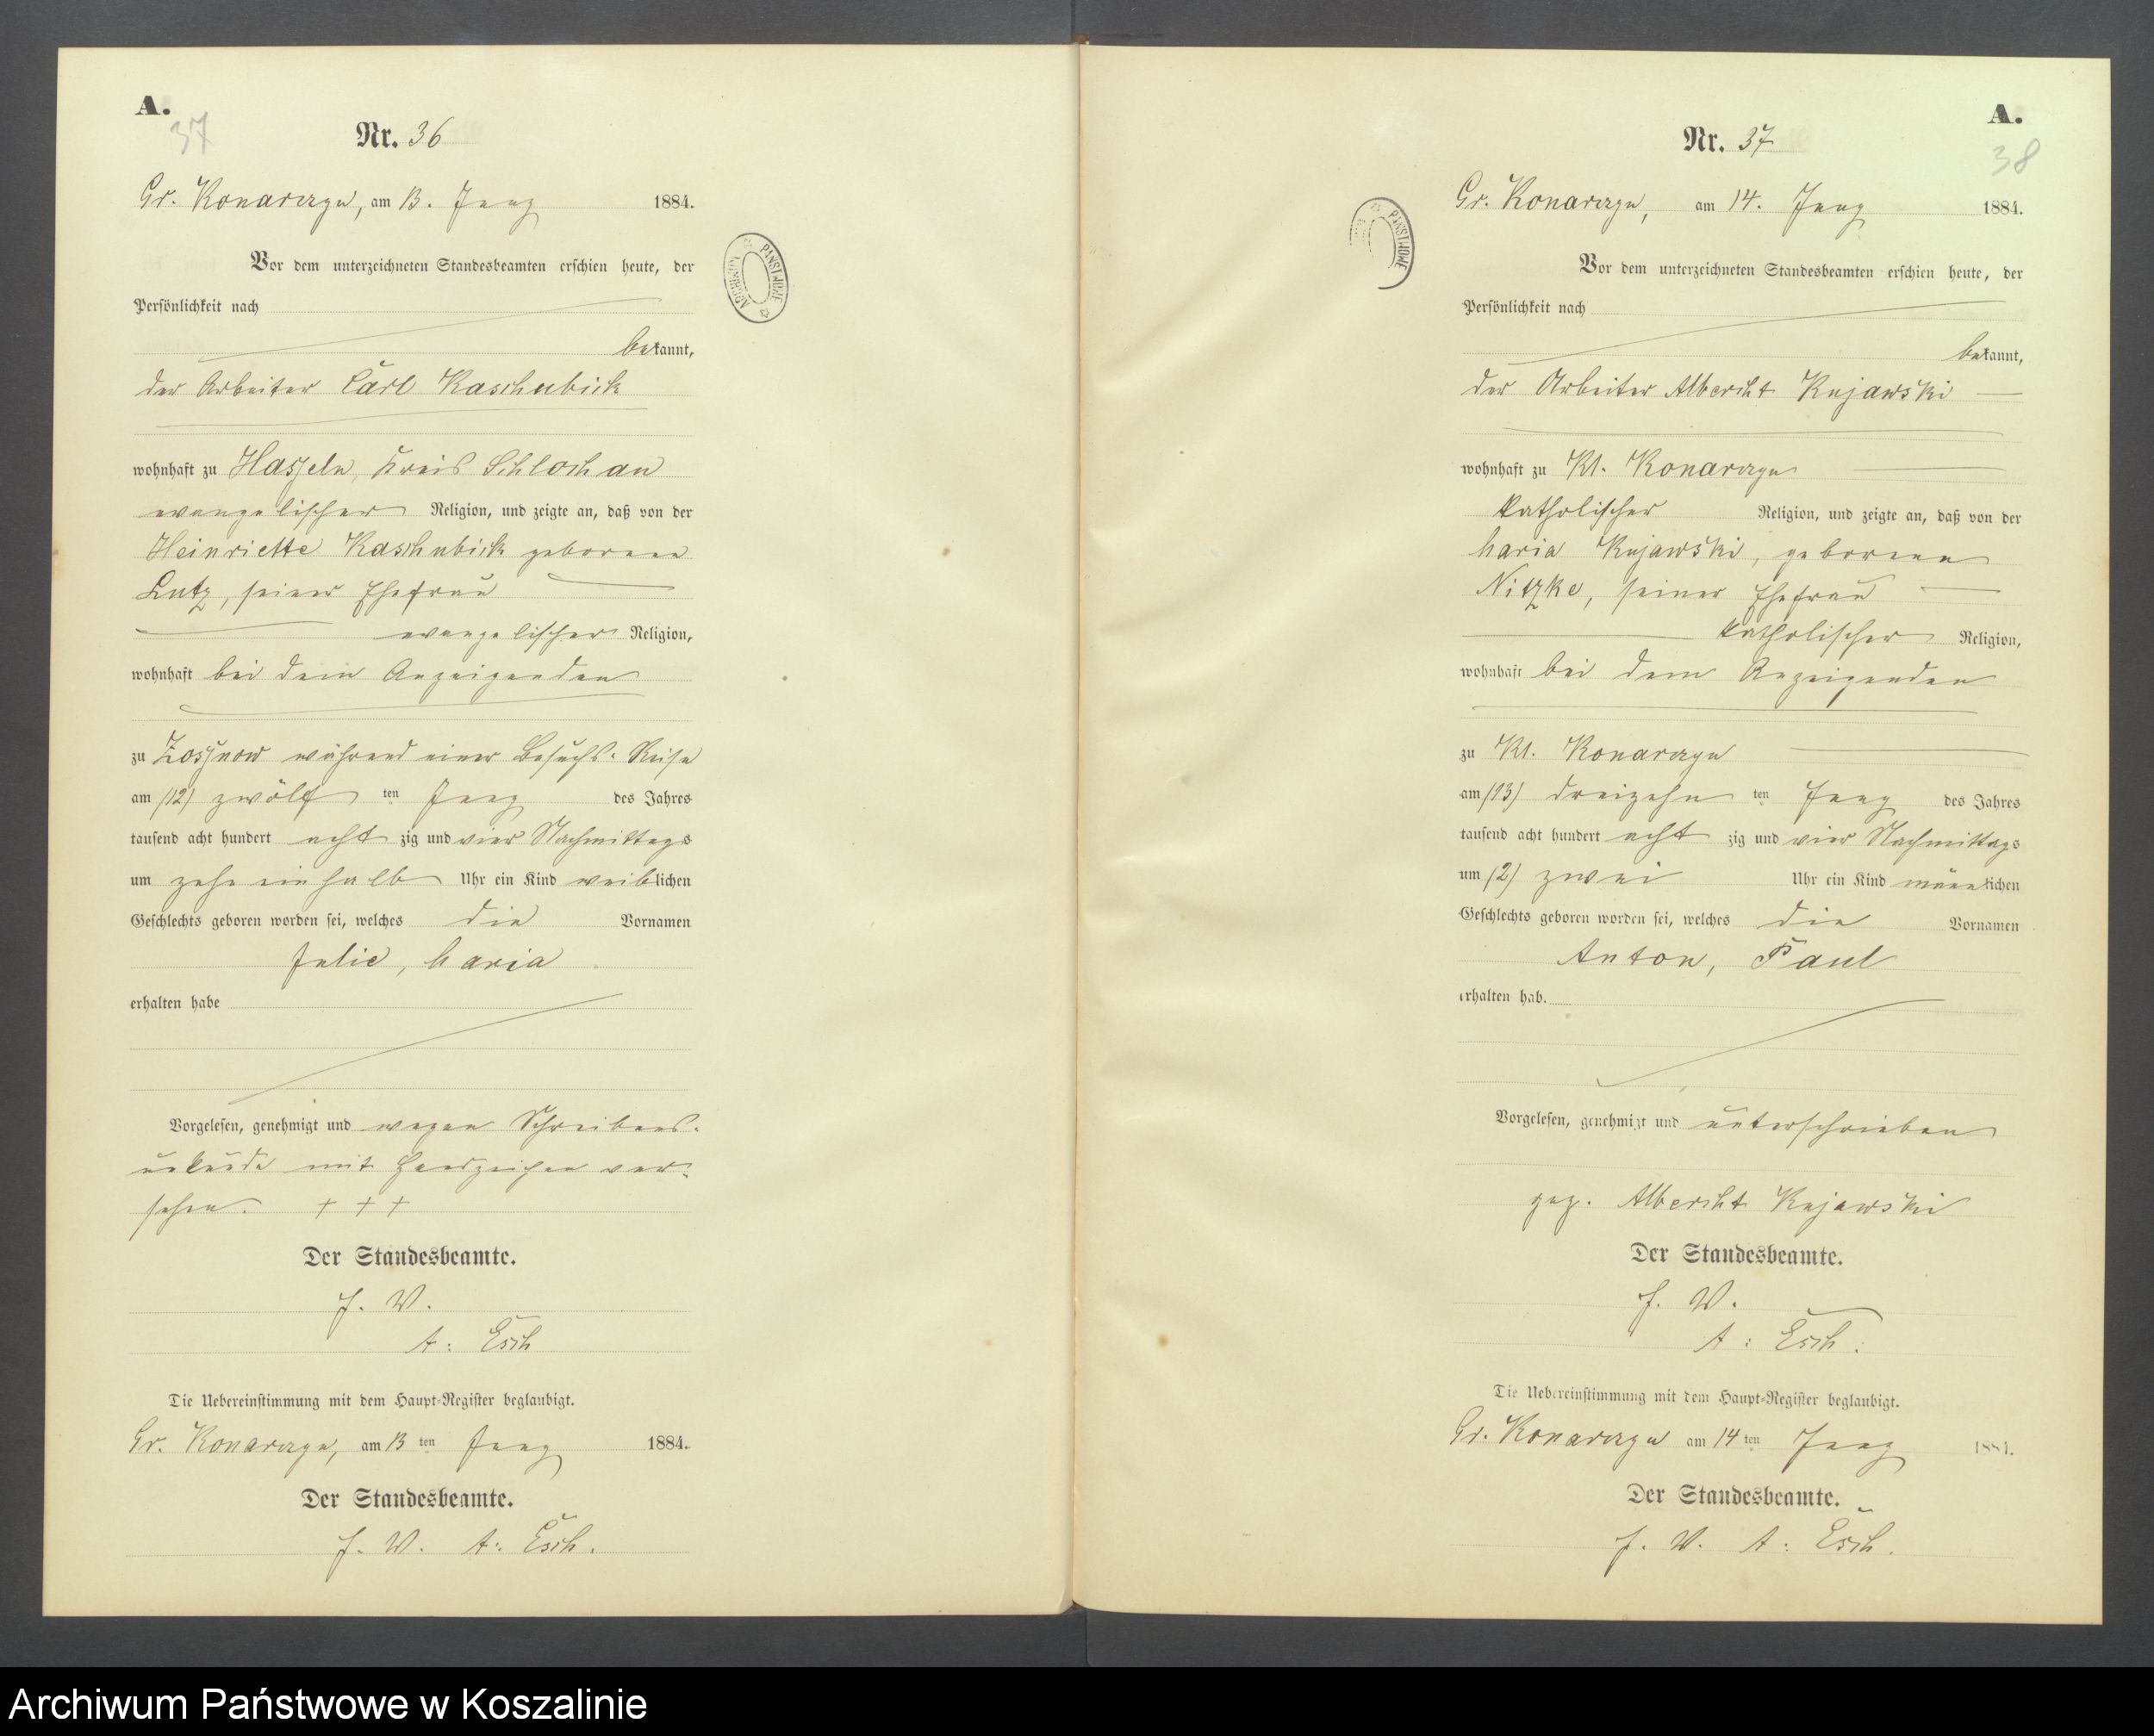 A.
37
Nr. 36
Gr. Konarczyn, am 13. Juny 1884.
Vor dem unterzeichneten Standesbeamten erschien heute, der
Persönlichkeit nach
bekannt,
der Arbeiter Carl Kaschubick
wohnhaft zu Hasseln, Kreis Schlochau
evangelischer Religion, und zeigte an, daß von der
Heinriette Kaschubick geborene
Lutz, seiner Ehefrau
evangelischer Religion,
wohnhaft bei dem Anzeigenden
zu Zossnow während einer Besuchs-Reise
am (12) zwölf ten Juny des Jahres
tausend acht hundert acht zig und vier Nachmittags
um zehn einhalb Uhr ein Kind weiblichen
Geschlechts geboren worden sei, welches die Vornamen
Julie, Maria
erhalten habe
Vorgelesen, genehmigt und wegen Schreibens-
unkunde mit Handzeichen ver-
sehen. + + +
Der Standesbeamte.
J. V.
A: Esch
Die Uebereinstimmung mit dem Haupt-Register beglaubigt.
Gr. Konarczyn, am 13 ten Juny 1884.
Der Standesbeamte.
J. V. A: Esch.
PAŃSTWOWE
ARCHIWUM
A.
38
Nr. 37
Gr. Konarczyn, am 14. Juny 1884.
Vor dem unterzeichneten Standesbeamten erschien heute, der
Persönlichkeit nach
bekannt,
der Arbeiter Albercht Kujawski
wohnhaft zu Kl. Konarczyn
katholischer Religion, und zeigte an, daß von der
Maria Kujawski, geborene
Nitzke, seiner Ehefrau
katholischer Religion,
wohnhaft bei dem Anzeigenden
zu Kl. Konarczyn
am (13) dreizehn ten Juny des Jahres
tausend acht hundert acht zig und vier Nachmittags
um (2) zwei Uhr ein Kind männlichen
Geschlechts geboren worden sei, welches die Vornamen
Anton, Paul
erhalten hab.
Vorgelesen, genehmigt und unterschrieben
gez. Albercht Kujawski
Der Standesbeamte.
J. V.
A: Esch.
Die Uebereinstimmung mit dem Haupt-Register beglaubigt.
Gr. Konarczyn am 14 ten Juny 1884.
Der Standesbeamte.
J. V. A: Esch.
PAŃSTWOWE
Archiwum Państwowe w Koszalinie